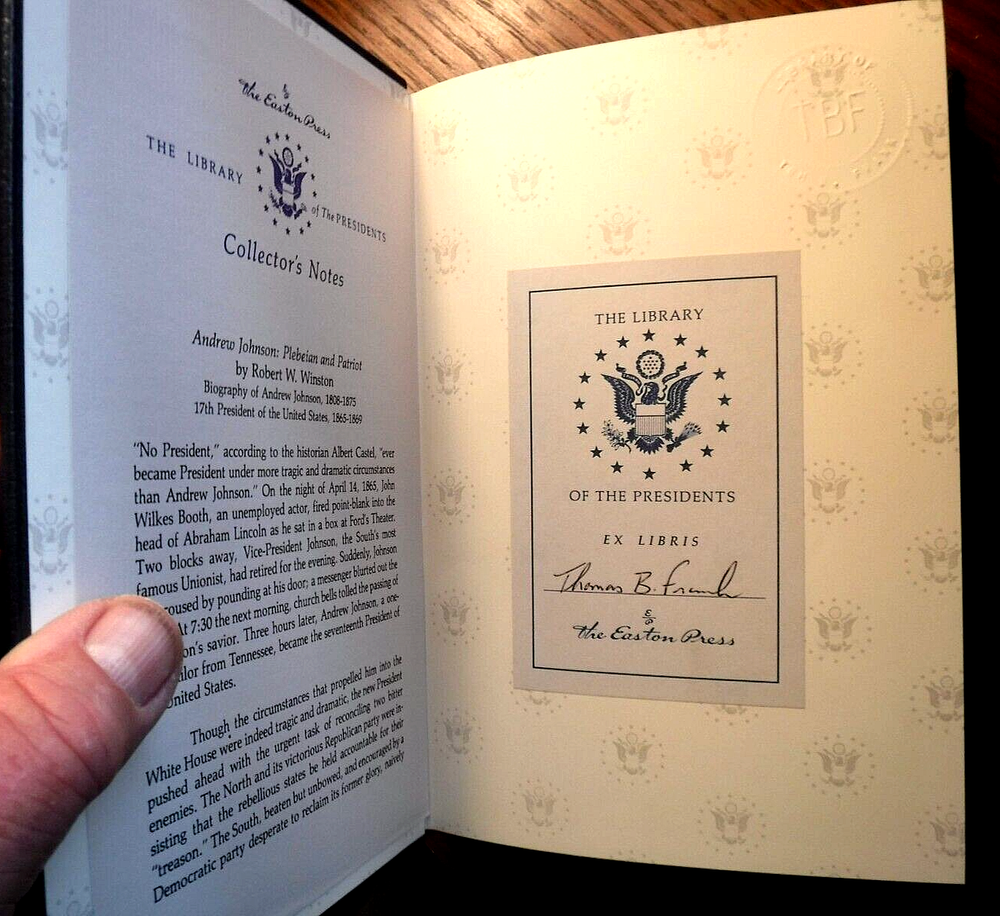 The Easton Press
THE LIBRARY
of The PRESIDENTS
Collector's Notes
Andrew Johnson: Plebeian and Patriot
by Robert W. Winston
Biography of Andrew Johnson, 1808-1875
17th President of the United States, 1865-1869
"No President," according to the historian Albert Castel, "ever
became President under more tragic and dramatic circumstances
than Andrew Johnson." On the night of April 14, 1865, John
Wilkes Booth, an unemployed actor, fired point-blank into the
head of Abraham Lincoln as he sat in a box at Ford's Theater.
Two blocks away, Vice-President Johnson, the South's most
famous Unionist, had retired for the evening. Suddenly, Johnson
roused by pounding at his door; a messenger blurted out the
At 7:30 the next morning, church bells tolled the passing of
on's savior. Three hours later, Andrew Johnson, a one-
ailor from Tennessee, became the seventeenth President of
United States.
Though the circumstances that propelled him into the
White House were indeed tragic and dramatic, the new President
pushed ahead with the urgent task of reconciling two bitter
enemies. The North and its victorious Republican party were in-
sisting that the rebellious states be held accountable for their
"treason." The South, beaten but unbowed, and encouraged by a
Democratic party desperate to reclaim its former glory, naively
LIBRARY OF
TBF
THE LIBRARY
OF THE PRESIDENTS
EX LIBRIS
Thomas B. French
The Easton Press